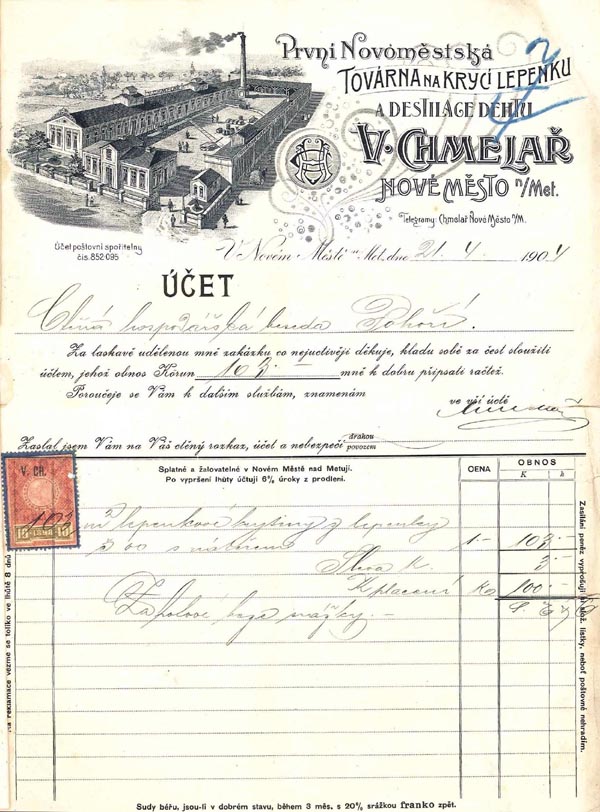 První Novoměstská
TOVÁRNA NA KRYCÍ LEPENKU
A DESTILACE DEHTU
V. CHMELAŘ
NOVÉ MĚSTO n/Met.
Telegramy: Chmelař Nové Město n/M.
Účet poštovní spořitelny
čís. 852·095
V Novém Městě n. Met. dne 21. 4. 1904
ÚČET
Ctěná hospodářská beseda Pohoří.
Za laskavě udělenou mně zakázku co nejuctivěji děkuje, kladu sobě za čest sloužiti
účtem, jehož obnos Korun 103·— mně k dobru připsati račtež.
Poroučeje se Vám k dalším službám, znamenám
ve vší úctě
Zaslal jsem Vám na Váš ctěný rozkaz, účet a nebezpečí drahou
povozem
Splatné a žalovatelné v Novém Městě nad Metují.
Po vypršení lhůty účtují 6% úroky z prodlení.
CENA
OBNOS
K h
V. CH.
103 m² lepenkové krytiny z lepenky 1·— 103·—
s nátěrem
Sleva K 3·—
K placení K 100·—
Na reklamace vezme se toliko ve lhůtě 8 dnů
Zasílání peněz vyprošuji si slož. lístky, neboť poštovné nehradím.
Sudy béřu, jsou-li v dobrém stavu, během 3 měs. s 20% srážkou franko zpět.